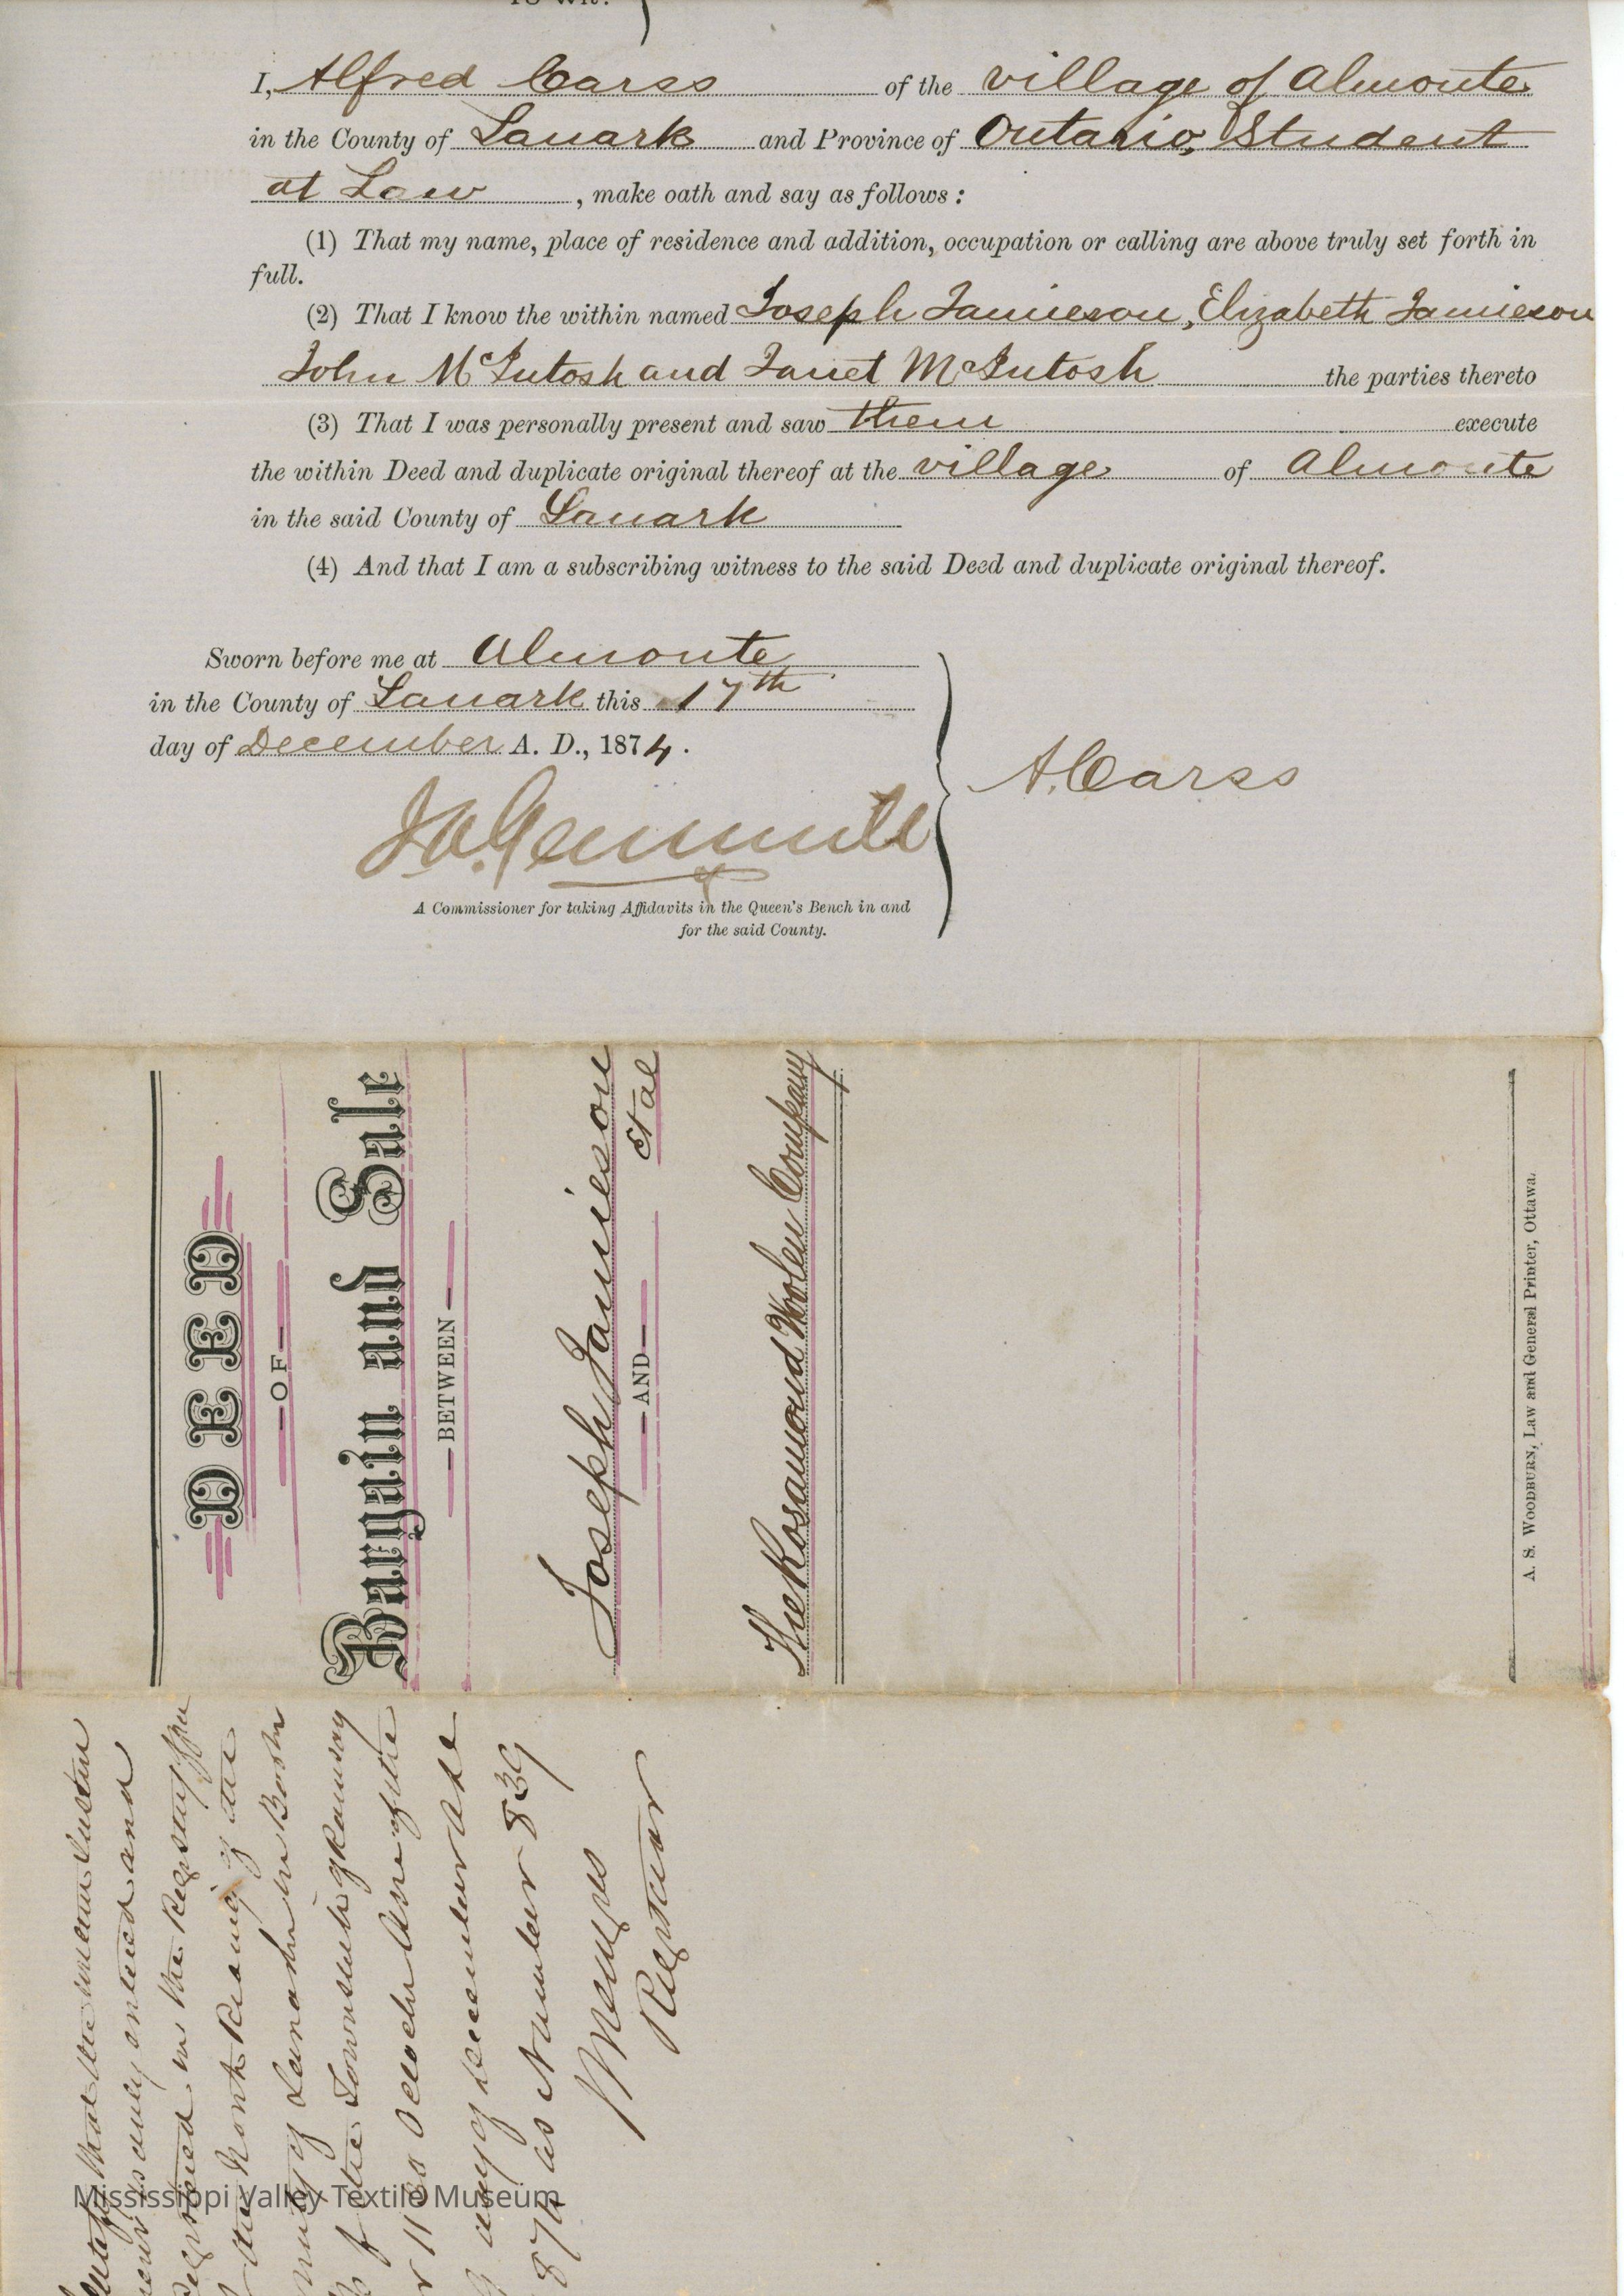 TO WIT:
I, Alfred Carss of the village of Almonte
in the County of Lanark and Province of Ontario, Student
at Law, make oath and say as follows:
(1) That my name, place of residence and addition, occupation or calling are above truly set forth in
full.
(2) That I know the within named Joseph Jamieson, Elizabeth Jamieson
John McIntosh and Janet McIntosh the parties thereto
(3) That I was personally present and saw them execute
the within Deed and duplicate original thereof at the village of Almonte
in the said County of Lanark
(4) And that I am a subscribing witness to the said Deed and duplicate original thereof.
Sworn before me at Almonte
in the County of Lanark this 17th
day of December A. D., 1874.
A. Carss
A Commissioner for taking Affidavits in the Queen's Bench in and
for the said County.
DEED
—OF—
Bargain and Sale
—BETWEEN—
Joseph Jamieson
et al
—AND—
The Rosamond Woolen Company
A. S. WOODBURN, Law and General Printer, Ottawa.
that the within
is duly entered and
Registered in the Registry
the North Riding of the
of Lanark in Book
the Township of Ramsay
O'Clock of the
day of December
as Number 839
Registrar
Mississippi Valley Textile Museum